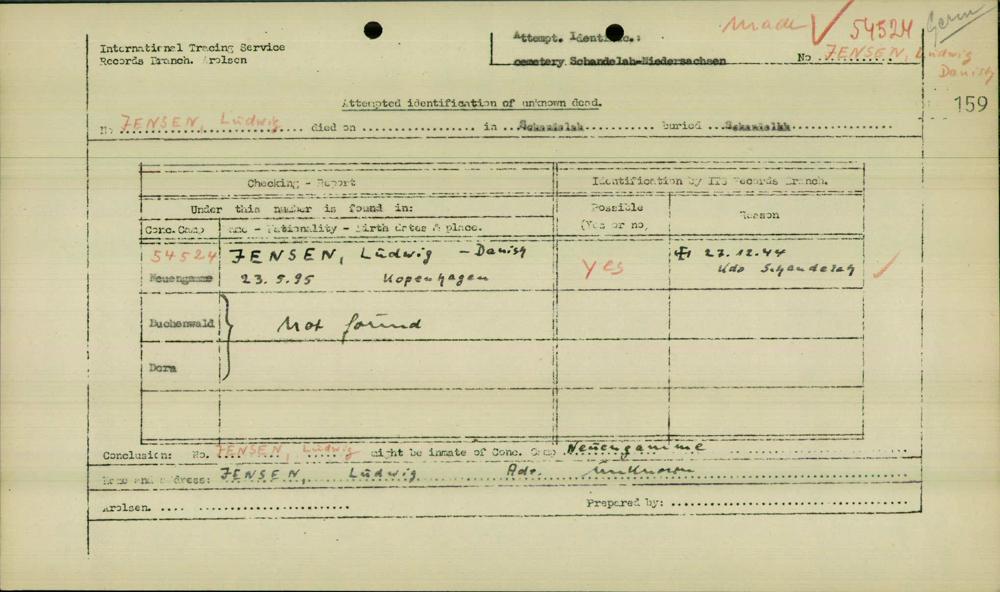 made ✓ 54524 Germ
International Tracing Service
Attempt. Identific.:
Records Branch. Arolsen
cemetery Schandelah-Niedersachsen
No JENSEN, Ludwig
Danish
159
Attempted identification of unknown dead.
No JENSEN, Ludwig died on in Schandelah buried Schandelah
Checking - Report
Identification by ITS Records Branch.
Under this number is found in:
Possible
(Yes or no)
Reason
Conc.Camp
Name - Nationality - Birth dates & place.
54524 JENSEN, Ludwig - Danish
yes
27.12.44
Neuengamme 23.5.95 Kopenhagen
Kdo Schandelah ✓
Buchenwald
Not found
Dora
Conclusion: No. JENSEN, Ludwig might be inmate of Conc. Camp Neuengamme
Name and address: JENSEN, Ludwig Adr. unknown
Arolsen.
Prepared by: